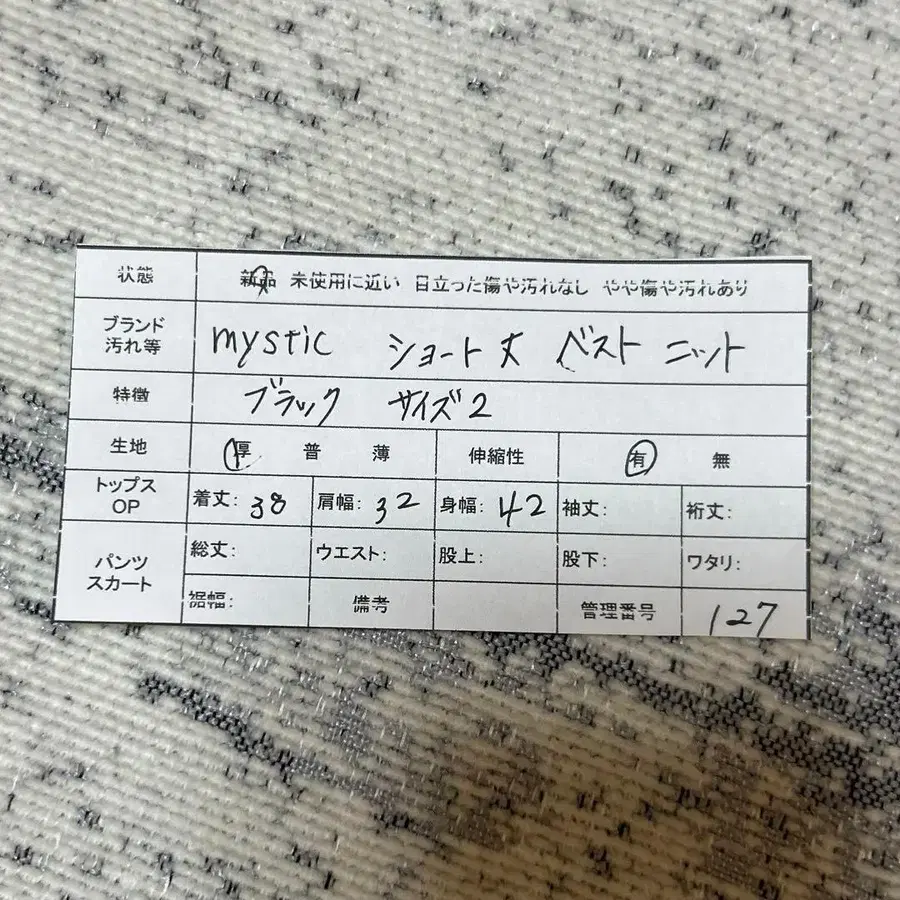 状態 新品 未使用に近い 目立った傷や汚れなし やや傷や汚れあり
ブランド
汚れ等 mystic ショート丈 ベスト ニット
特徴 ブラック サイズ2
生地 厚 普 薄 伸縮性 有 無
トップス
OP 着丈: 38 肩幅: 32 身幅: 42 袖丈: 裄丈:
パンツ
スカート 総丈: ウエスト: 股上: 股下: ワタリ:
裾幅: 備考 管理番号 127